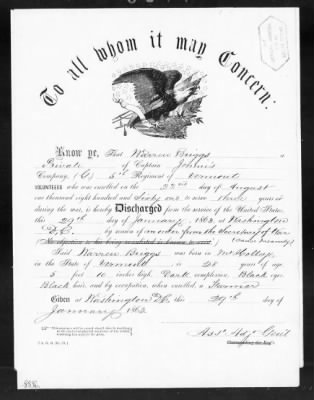 To all whom it may Concern:
Know ye, That Warren Briggs a
Private of Captain John's
Company, (G,) 5th Regiment of Vermont
VOLUNTEERS who was enlisted on the 22nd day of August
one thousand eight hundred and Sixty one to serve three years or
during the war, is hereby Discharged from the service of the United States,
this 29th day of January, 1863, at Washington
D.C. by reason of an order from the Secretary of War
(No objection to his being re-enlisted is known to exist.)
Said Warren Briggs was born in
in the State of Vermont, is 28 years of age,
5 feet 10 inches high, Dark complexion, Black eyes,
Black hair, and by occupation, when enrolled, a Farmer
Given at Washington D.C. this 29th day of
January 1863.
Asst Adjt Genl
Commanding the Reg't